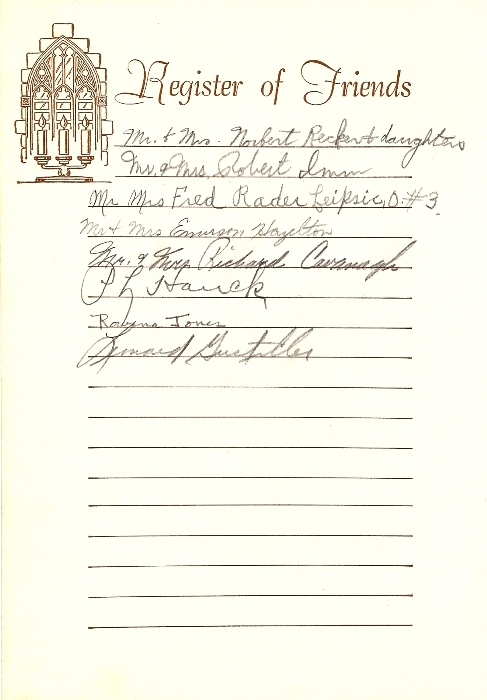 Register of Friends
Mr. & Mrs. Norbert Recker & daughters
Mr. & Mrs. Robert Imm
Mr Mrs Fred Rader Leipsic, O. #3
Mr & Mrs Emerson Hazelton
Mr. & Mrs Richard Cavanagh
P L Hauck
Rowena Jones